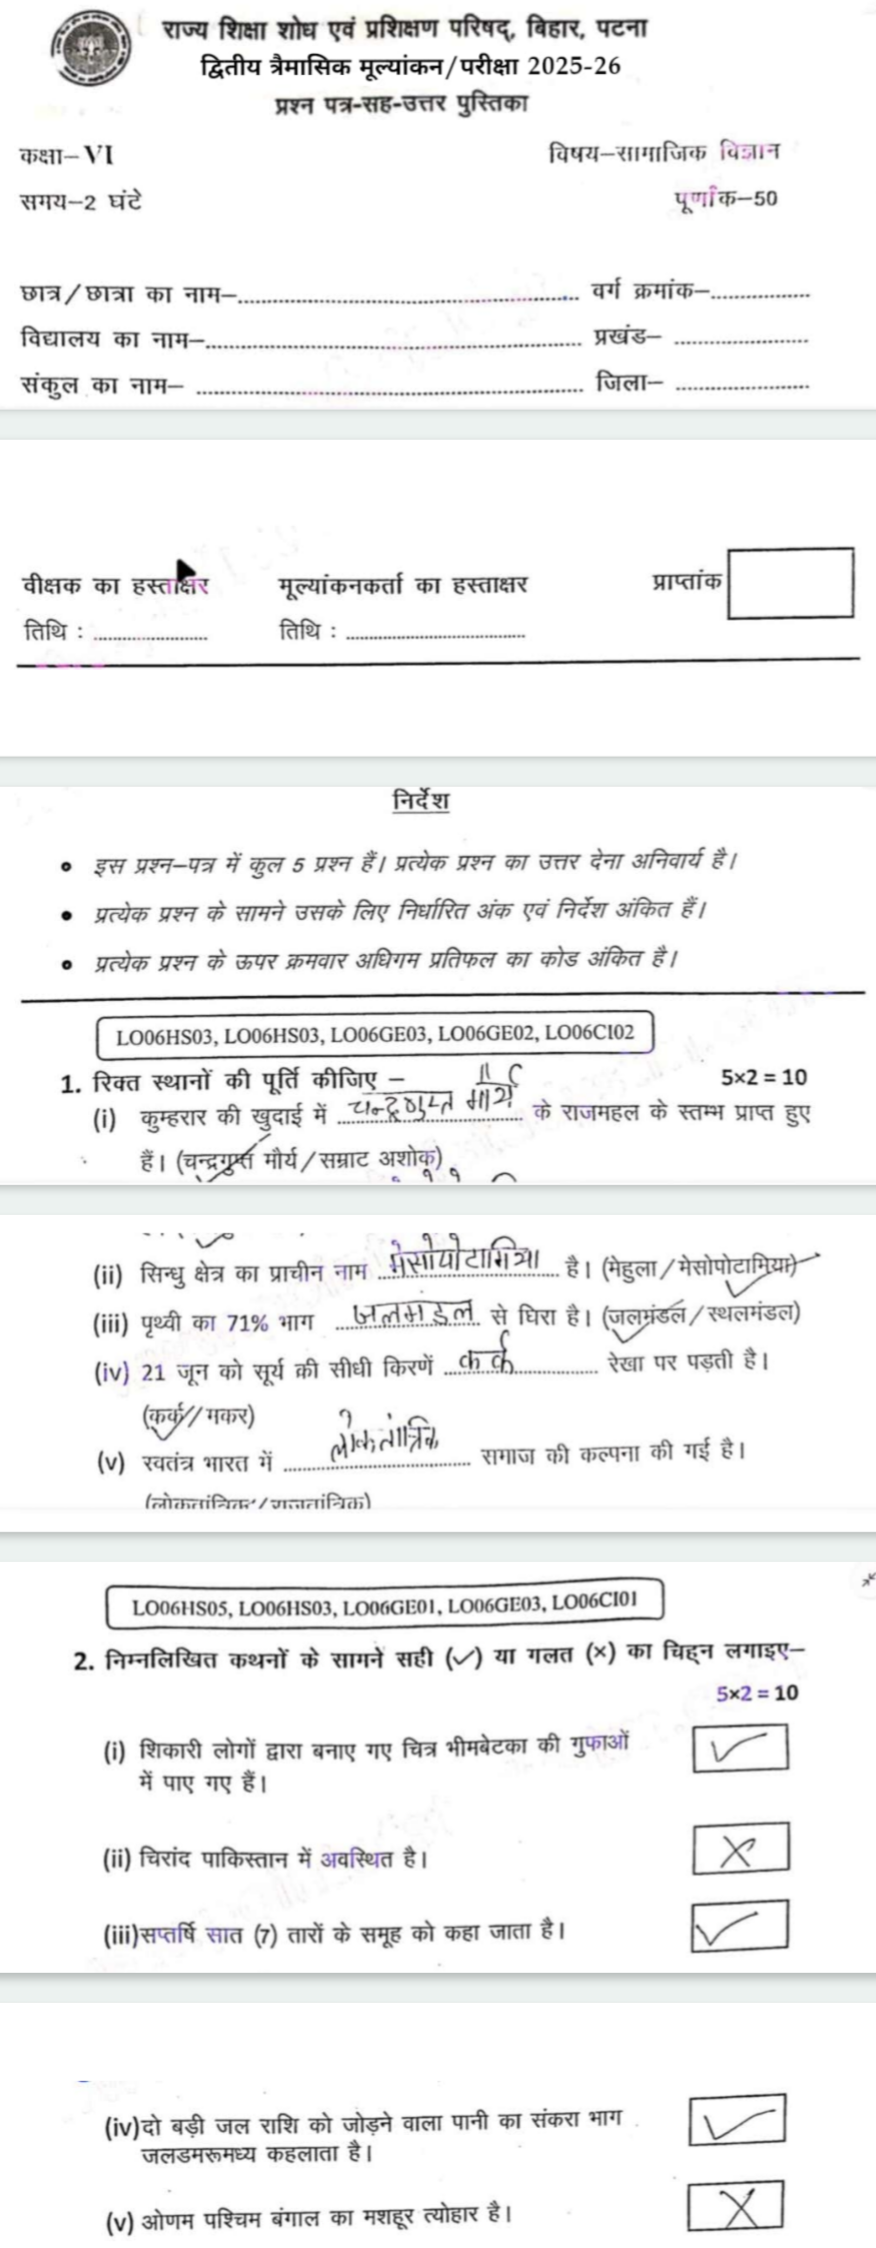 राज्य शिक्षा शोध एवं प्रशिक्षण परिषद्, बिहार, पटना
द्वितीय त्रैमासिक मूल्यांकन/परीक्षा 2025-26
प्रश्न पत्र-सह-उत्तर पुस्तिका
कक्षा-VI विषय-सामाजिक विज्ञान
समय-2 घंटे पूर्णांक-50
छात्र/छात्रा का नाम- वर्ग क्रमांक-
विद्यालय का नाम- प्रखंड-
संकुल का नाम- जिला-
वीक्षक का हस्ताक्षर मूल्यांकनकर्ता का हस्ताक्षर प्राप्तांक
तिथि : तिथि :
निर्देश
• इस प्रश्न-पत्र में कुल 5 प्रश्न हैं। प्रत्येक प्रश्न का उत्तर देना अनिवार्य है।
• प्रत्येक प्रश्न के सामने उसके लिए निर्धारित अंक एवं निर्देश अंकित हैं।
• प्रत्येक प्रश्न के ऊपर क्रमवार अधिगम प्रतिफल का कोड अंकित है।
LO06HS03, LO06HS03, LO06GE03, LO06GE02, LO06CI02
1. रिक्त स्थानों की पूर्ति कीजिए – 5×2 = 10
(i) कुम्हरार की खुदाई में चन्द्रगुप्त मौर्य के राजमहल के स्तम्भ प्राप्त हुए
हैं। (चन्द्रगुप्त मौर्य/सम्राट अशोक)
(ii) सिन्धु क्षेत्र का प्राचीन नाम मेसोपोटामिया है। (मेहुला/मेसोपोटामिया)
(iii) पृथ्वी का 71% भाग जलमंडल से घिरा है। (जलमंडल/स्थलमंडल)
(iv) 21 जून को सूर्य की सीधी किरणें कर्क रेखा पर पड़ती है।
(कर्क/मकर)
(v) स्वतंत्र भारत में लोकतांत्रिक समाज की कल्पना की गई है।
(लोकतांत्रिक/राजतांत्रिक)
LO06HS05, LO06HS03, LO06GE01, LO06GE03, LO06CI01
2. निम्नलिखित कथनों के सामने सही (✓) या गलत (×) का चिह्न लगाइए-
5×2 = 10
(i) शिकारी लोगों द्वारा बनाए गए चित्र भीमबेटका की गुफाओं ✓
में पाए गए हैं।
(ii) चिरांद पाकिस्तान में अवस्थित है। ×
(iii) सप्तर्षि सात (7) तारों के समूह को कहा जाता है। ✓
(iv) दो बड़ी जल राशि को जोड़ने वाला पानी का संकरा भाग ✓
जलडमरूमध्य कहलाता है।
(v) ओणम पश्चिम बंगाल का मशहूर त्योहार है। ×